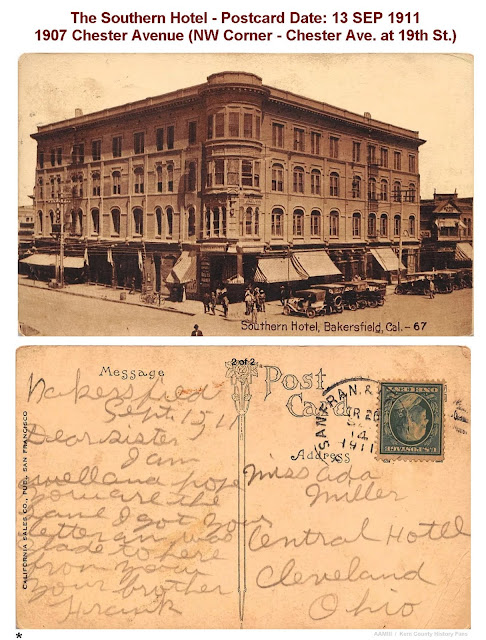 The Southern Hotel - Postcard Date: 13 SEP 1911
1907 Chester Avenue (NW Corner - Chester Ave. at 19th St.)
Southern Hotel, Bakersfield, Cal.- 67
2 of 2
Message
Post
Card
Address
CALIFORNIA SALES CO., PUB., SAN FRANCISCO
Bakersfield
Sept 15, 11
Dear sister
I am
well and hope
you are the
same I got your
letter an was
glad to here
from you
your brother
Frank
SAN FRAN. &
14
1911
Miss Ada
Miller
Central Hotel
Cleveland
Ohio
*
Kern County History Fans